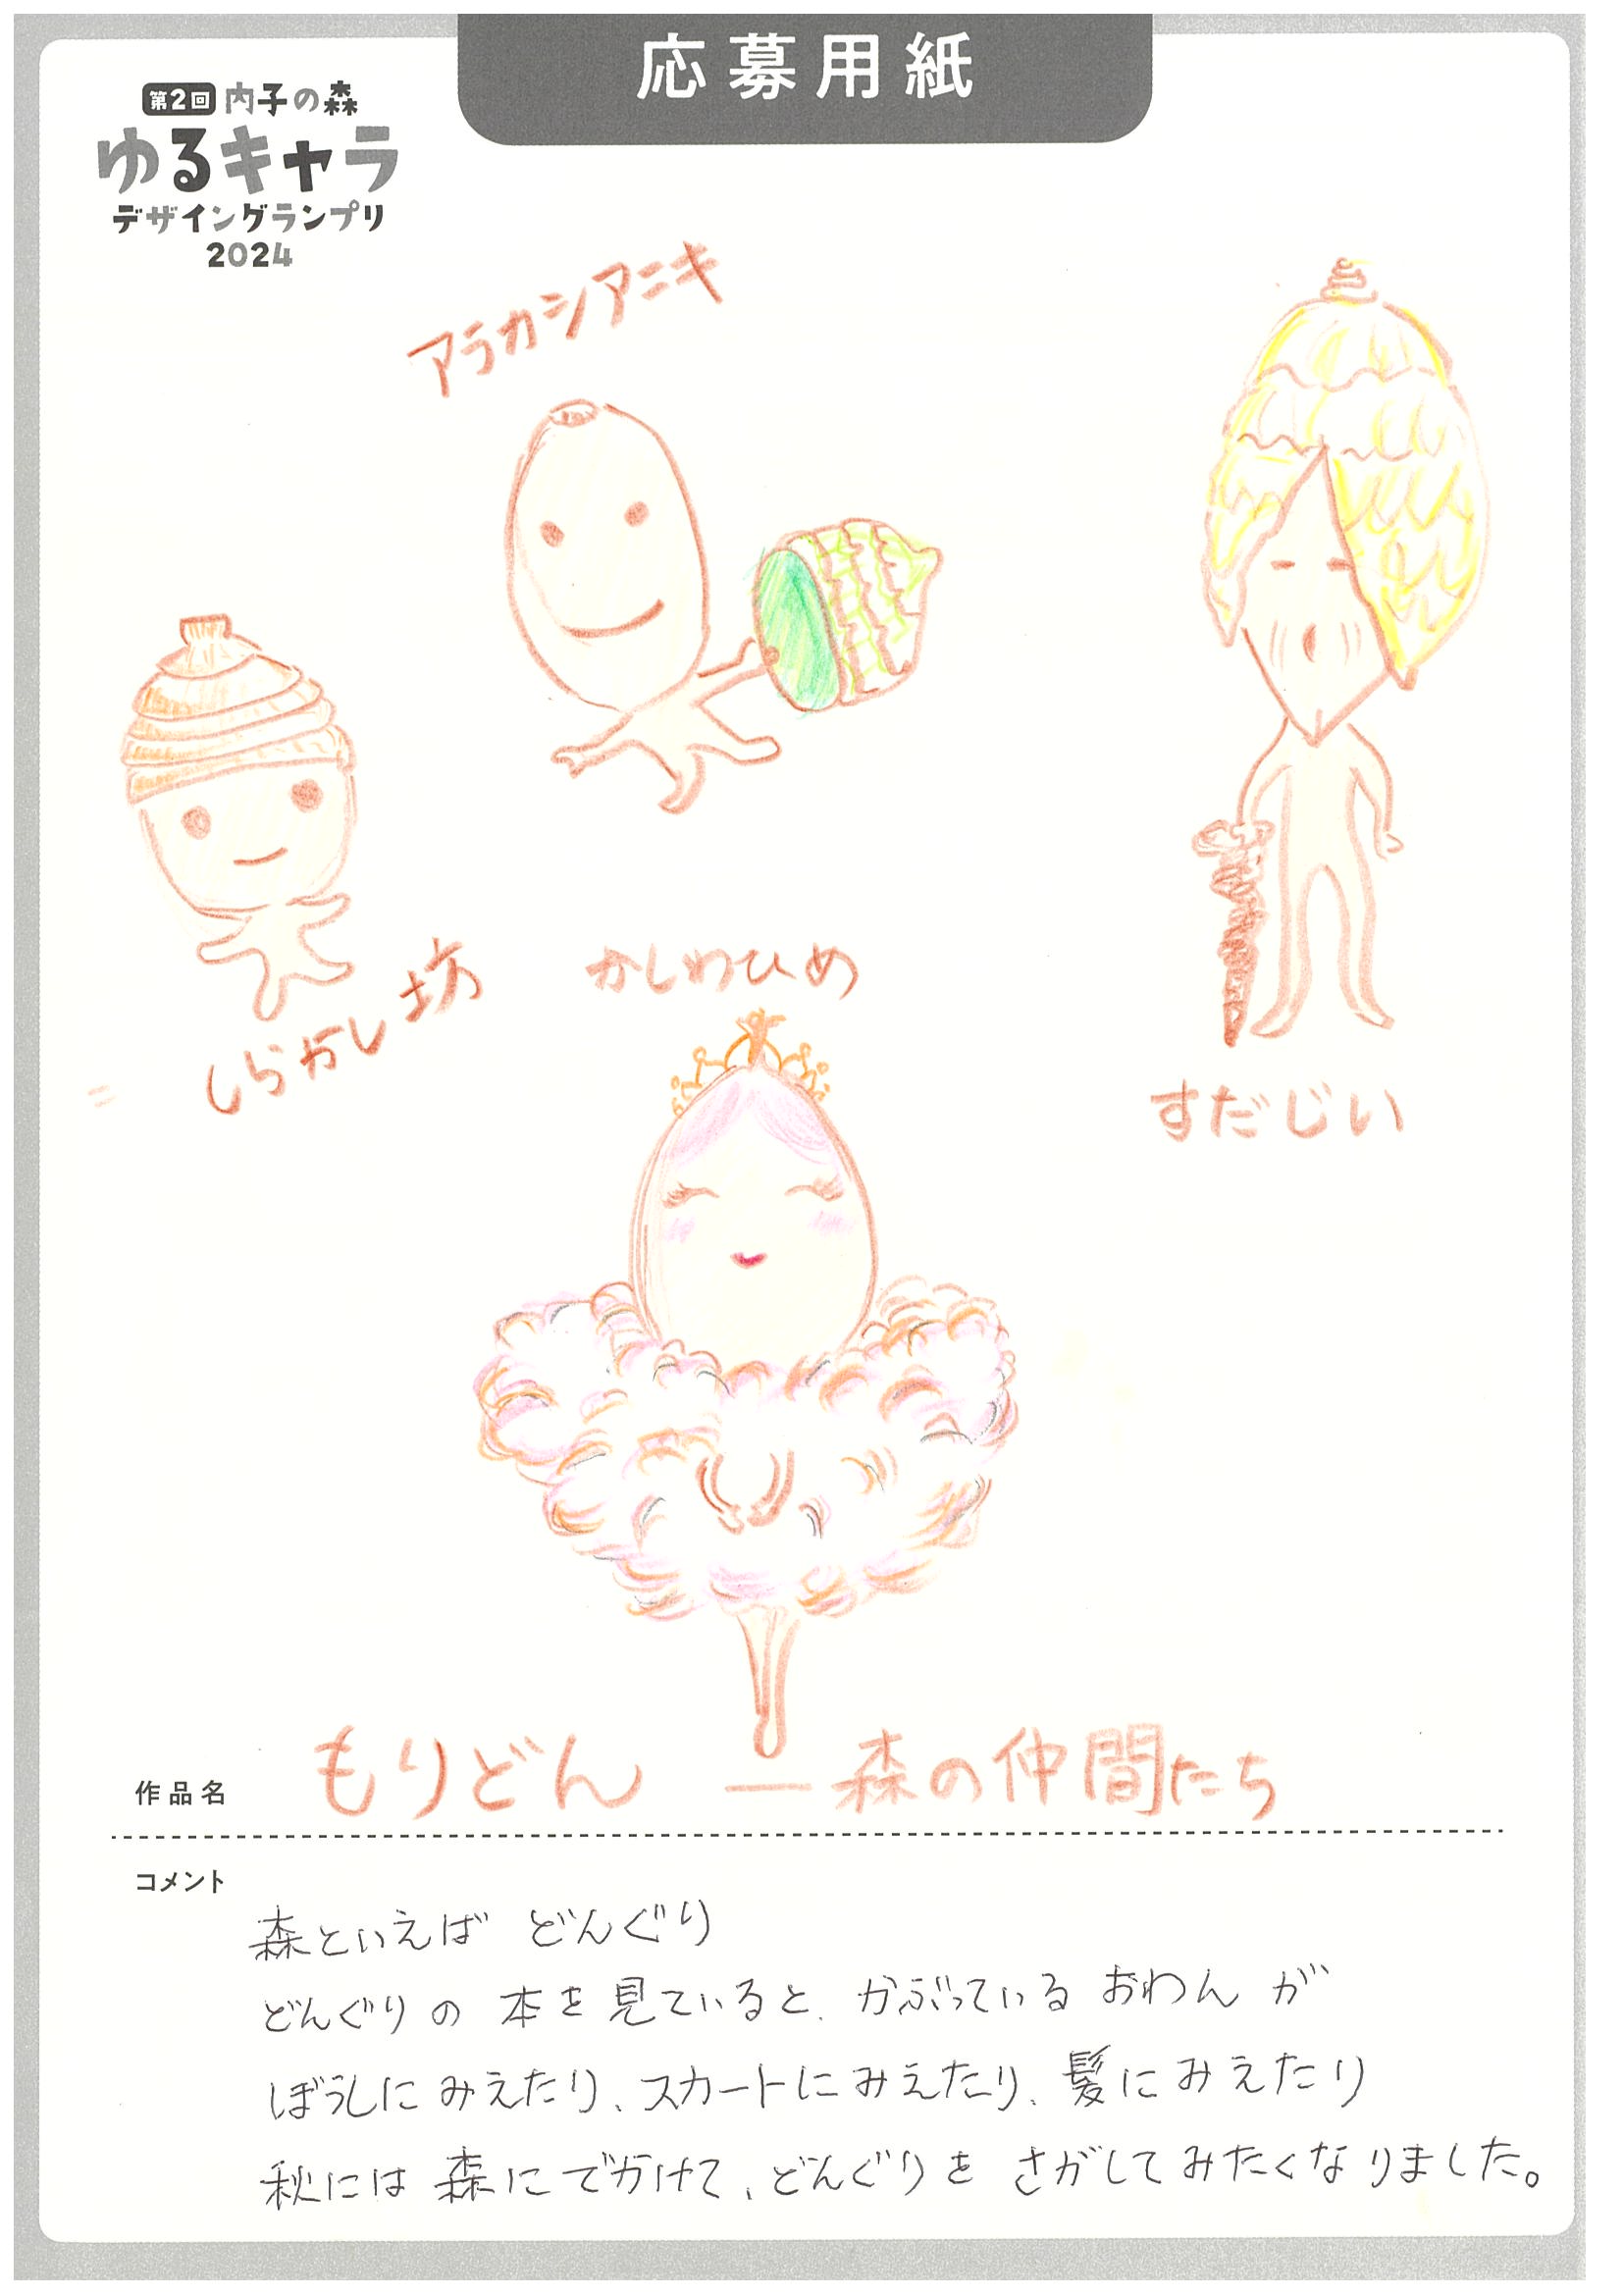 応募用紙
第2回 内子の森
ゆるキャラ
デザイングランプリ
2024
アラカシアニキ
しらかし坊
かしわひめ
すだじい
作品名 もりどん ー森の仲間たち
コメント
森といえば どんぐり
どんぐりの 本を見ていると、かぶっている おわん が
ぼうしに みえたり、スカートにみえたり、髪にみえたり
秋には 森にでかけて、どんぐりを さがしてみたくなりました。